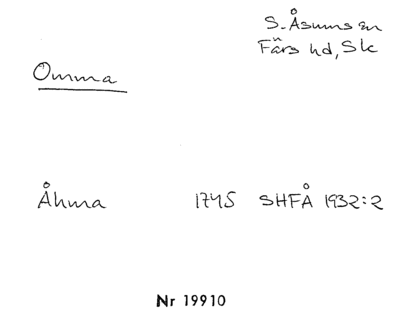 S. Åsums sn
Färs hd, Sk
Omma
Åhma 1745 SHFÅ 1932:2
Nr 19910